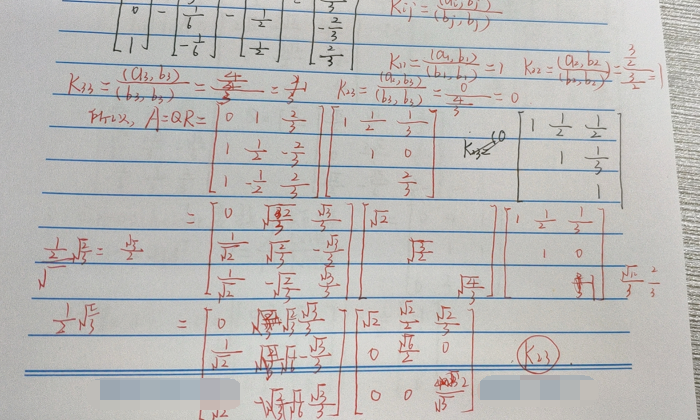 K_{ij} = \frac{(a_i, b_j)}{(b_j, b_j)}
\begin{bmatrix} 0 \\ 1 \end{bmatrix} - \begin{bmatrix} \frac{1}{6} \\ -\frac{1}{6} \end{bmatrix} - \begin{bmatrix} \frac{1}{2} \\ \frac{1}{2} \end{bmatrix} \begin{bmatrix} \frac{2}{3} \\ -\frac{2}{3} \\ \frac{2}{3} \end{bmatrix}
K_{11} = \frac{(a_1, b_1)}{(b_1, b_1)} = 1 K_{22} = \frac{(a_2, b_2)}{(b_2, b_2)} = \frac{\frac{3}{2}}{\frac{3}{2}} = 1
K_{33} = \frac{(a_3, b_3)}{(b_3, b_3)} = K_{23} = \frac{(a_2, b_3)}{(b_3, b_3)} = \frac{0}{\frac{4}{3}} = 0
所以, A = QR = \begin{bmatrix} 0 & 1 & \frac{2}{3} \\ 1 & \frac{1}{2} & -\frac{2}{3} \\ 1 & -\frac{1}{2} & \frac{2}{3} \end{bmatrix} \begin{bmatrix} 1 & \frac{1}{2} & \frac{1}{3} \\ & 1 & 0 \\ & & \frac{2}{3} \end{bmatrix} \begin{bmatrix} 1 & \frac{1}{2} & \frac{1}{2} \\ & 1 & \frac{1}{3} \\ & & 1 \end{bmatrix}
= \begin{bmatrix} 0 & & \frac{\sqrt{3}}{3} \\ \frac{1}{\sqrt{2}} & \frac{\sqrt{2}}{3} & -\frac{\sqrt{3}}{3} \\ \frac{1}{\sqrt{2}} & -\frac{\sqrt{2}}{3} & \frac{\sqrt{3}}{3} \end{bmatrix} \begin{bmatrix} \sqrt{2} & & \\ & \sqrt{\frac{3}{2}} & \\ & & \sqrt{\frac{4}{3}} \end{bmatrix} \begin{bmatrix} 1 & \frac{1}{2} & \frac{1}{3} \\ & 1 & 0 \\ & & \end{bmatrix}
\frac{1}{2} \frac{\sqrt{2}}{3} = \frac{\sqrt{3}}{2} \frac{\sqrt{12}}{3} \frac{2}{3}
\frac{1}{2} \sqrt{\frac{2}{3}} = \begin{bmatrix} 0 & \sqrt{\frac{2}{3}} & \frac{\sqrt{3}}{3} \\ \frac{1}{\sqrt{2}} & \frac{1}{\sqrt{6}} & -\frac{\sqrt{3}}{3} \\ & \frac{1}{\sqrt{6}} & \frac{\sqrt{3}}{3} \end{bmatrix} \begin{bmatrix} \sqrt{2} & \frac{\sqrt{2}}{2} & \frac{\sqrt{2}}{3} \\ 0 & \frac{\sqrt{6}}{2} & 0 \\ 0 & 0 & \frac{2}{\sqrt{3}} \end{bmatrix} K_{23}